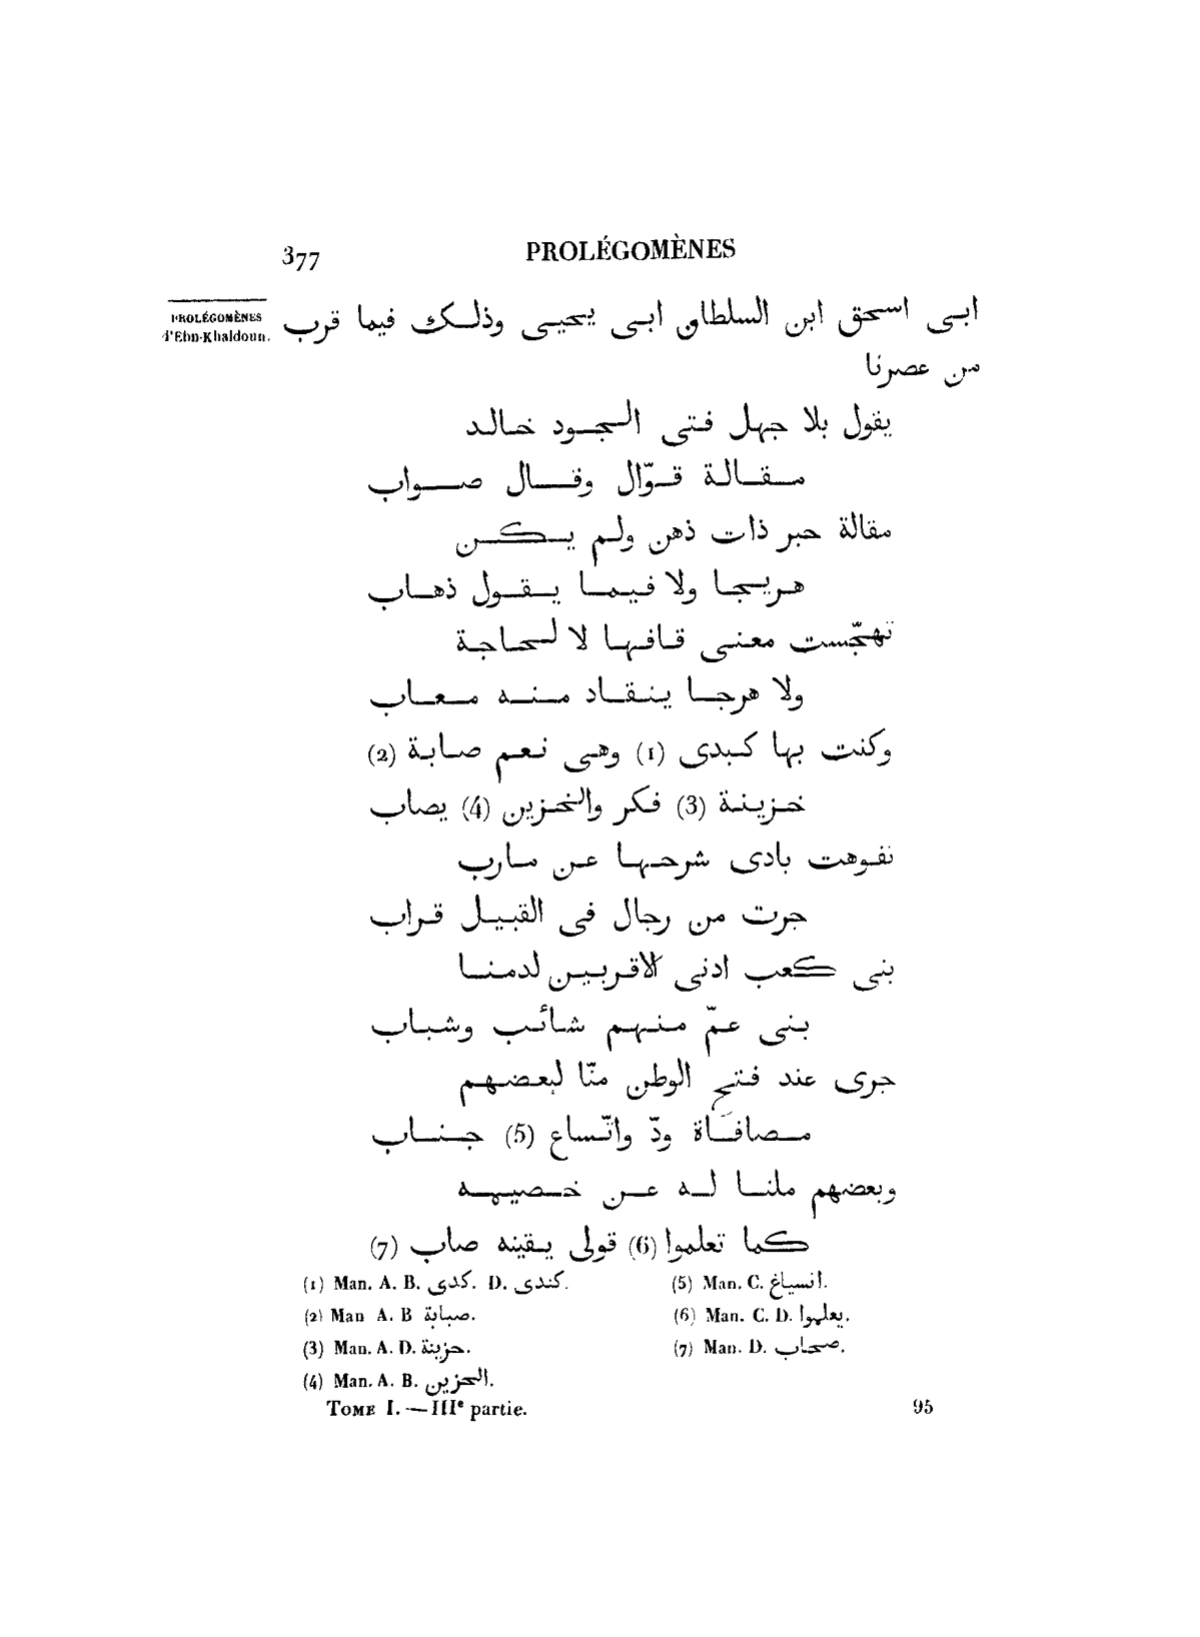 377
PROLÉGOMÈNES
PROLÉGOMÈNES
d'Ebn-Khaldoun.
ابى اسحق ابن السلطان ابى يحيى وذلك فيما قرب
من عصرنا
يقول بلا جهل فتى الجود خالد
مقالة قوّال وقال صواب
مقالة حبر ذات ذهن ولم يكن
هريجا ولا فيما يقول ذهاب
تهجّست معنى قافها لا لحاجة
ولا هرجا ينقاد منه معاب
وكنت بها كبدى (1) وهى نعم صابة (2)
خزينة (3) فكر والخزين (4) يصاب
نفوهت بادى شرحها عن مارب
جرت من رجال فى القبيل قراب
بنى كعب ادنى الاقربين لدمنا
بنى عمّ منهم شائب وشباب
جرى عند فتح الوطن منّا لبعضهم
مصافاة ودّ واتّساع (5) جناب
وبعضهم ملنا له عن خصيهه
كما تعلموا (6) قولى يقينه صاب (7)
(1) Man. A. B. كدى. D. كندى.
(2) Man A. B صبابة.
(3) Man. A. D. حزينة.
(4) Man. A. B. الحزين.
(5) Man. C. انسياغ.
(6) Man. C. D. يعلموا.
(7) Man. D. صحاب.
TOME I. — IIIe partie.
95